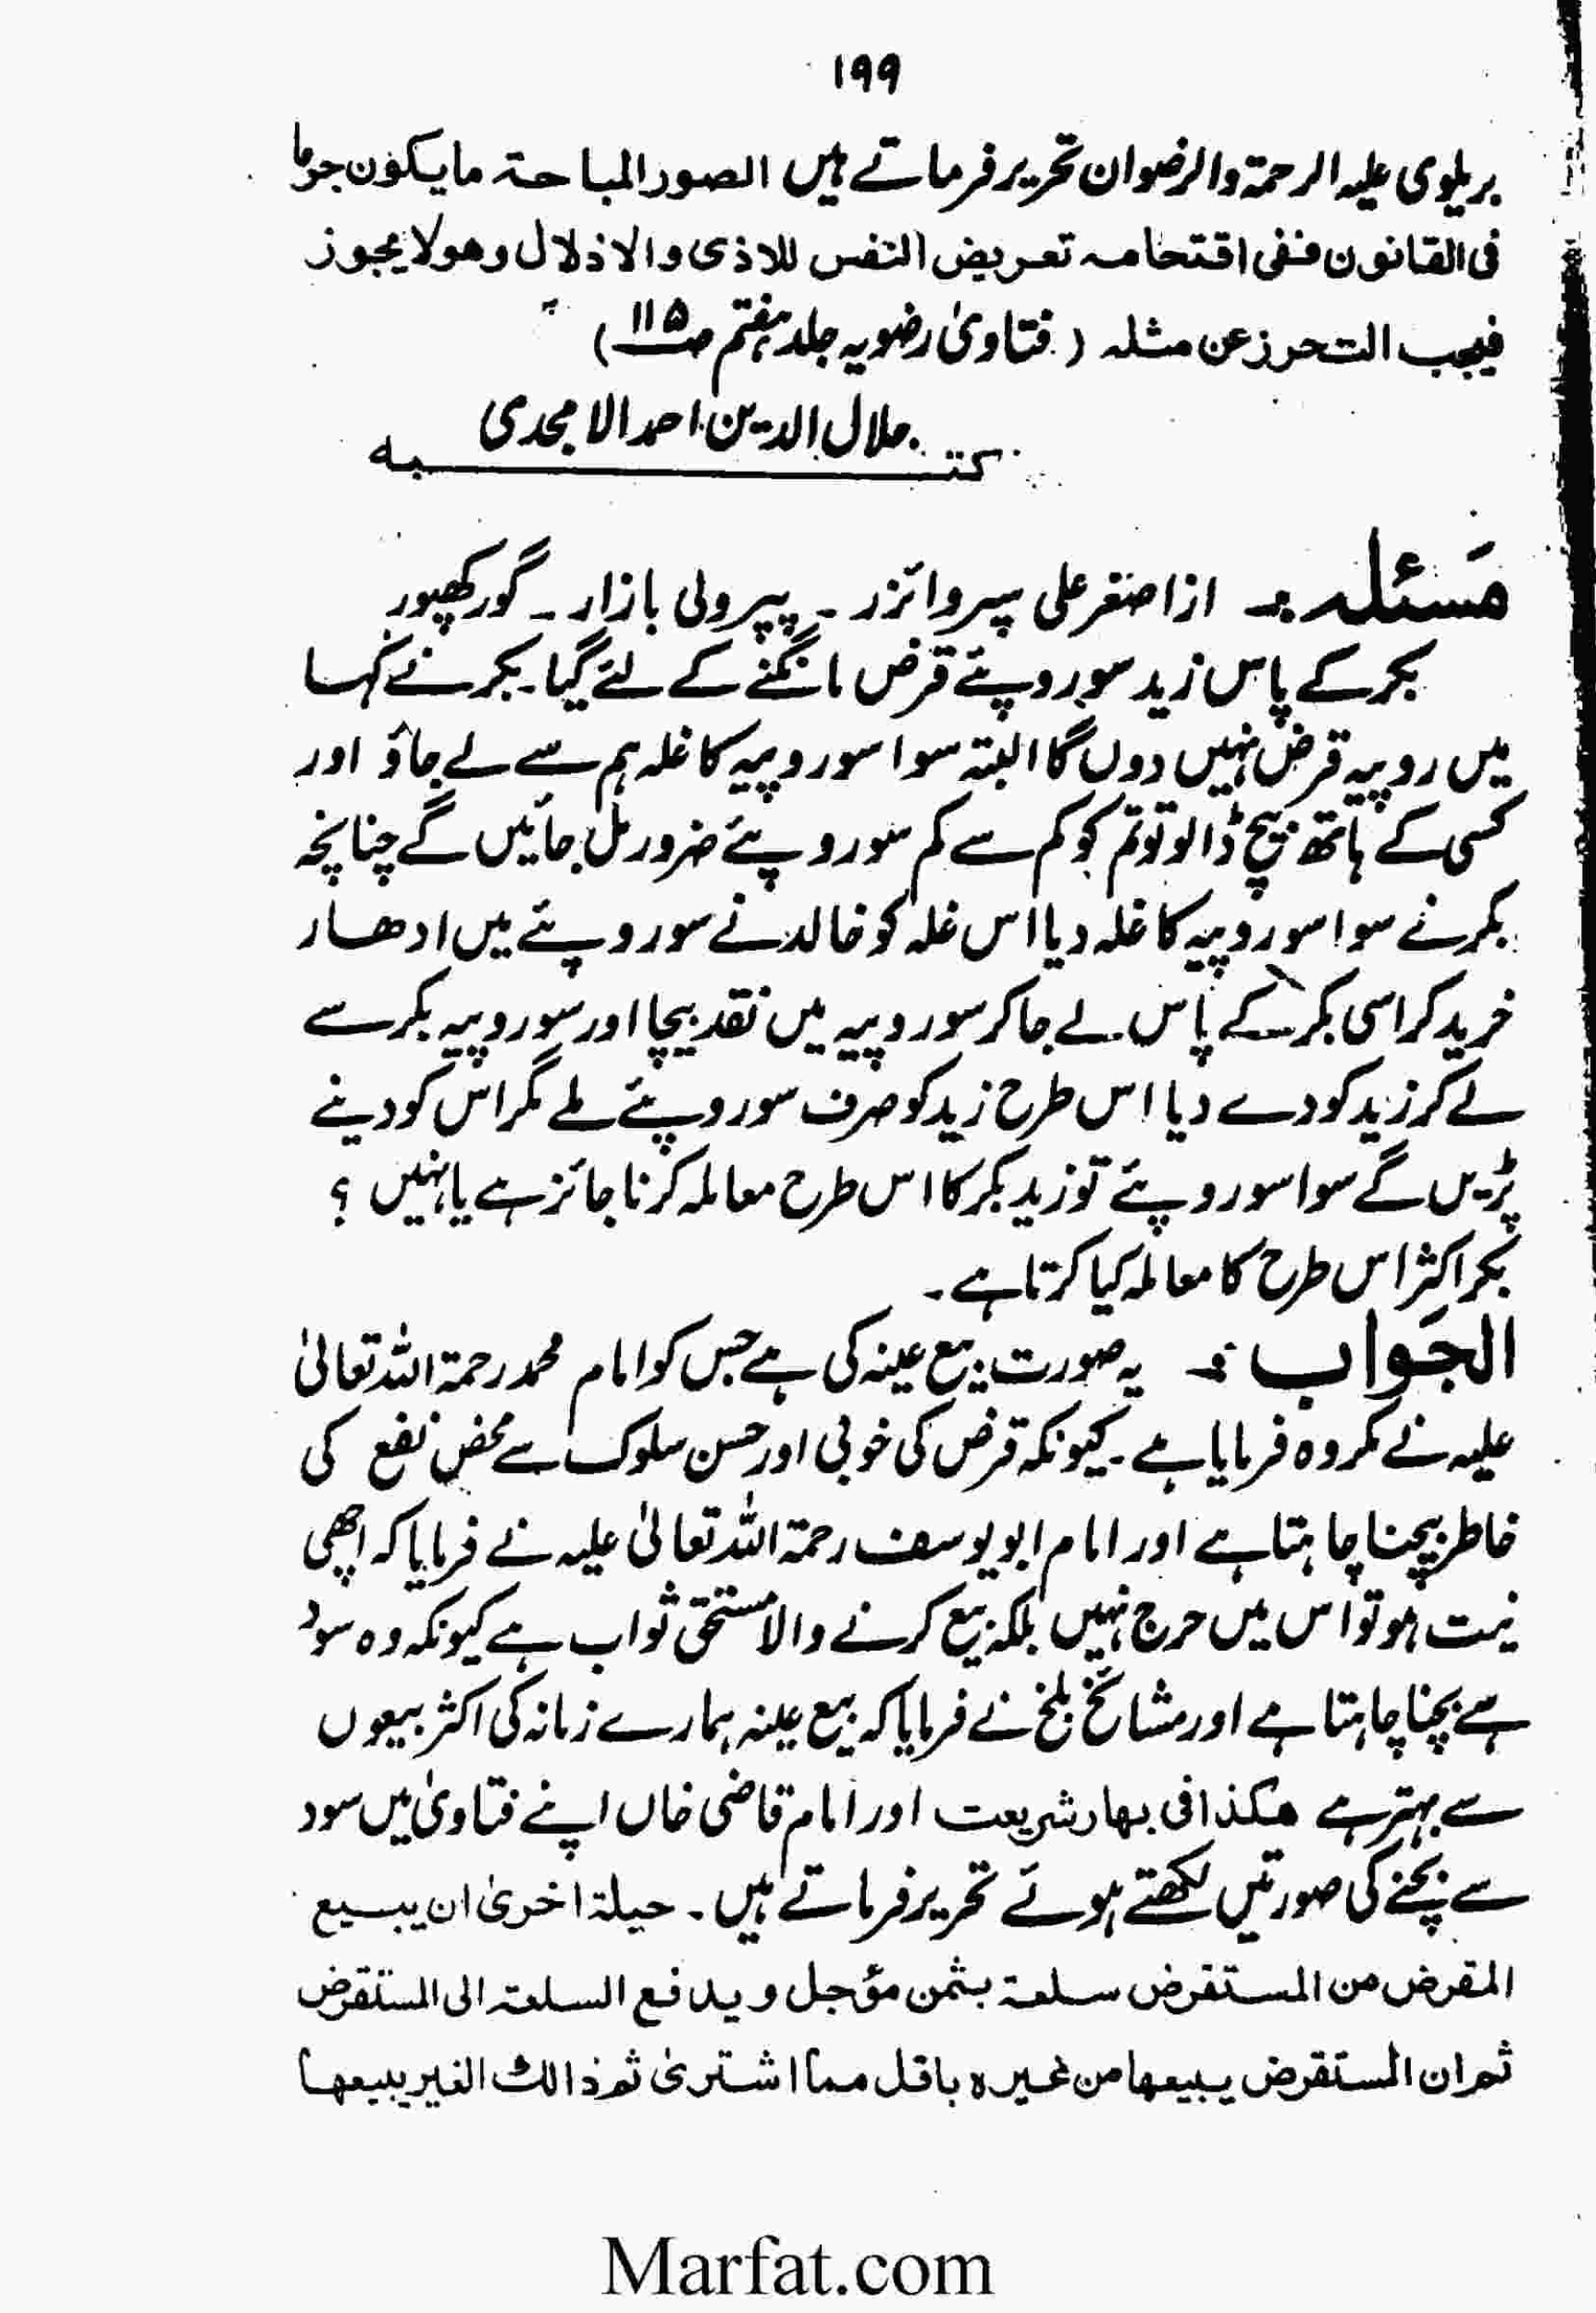 ۱۹۹
بریلوی علیہ الرحمۃ والرضوان تحریر فرماتے ہیں الصور المباحۃ مایکون جرما
فی القانون ففی اقتحامہ تعریض النفس للاذی والاذلال وھو لا یجوز
فیجب التحرز عن مثلہ (فتاویٰ رضویہ جلد ہفتم صـ۱۱۵)
جلال الدین احمد الامجدی
کتبہ
مسئلہ :۔ از اصغر علی سپروائزر ۔ پیپرولی بازار ۔ گورکھپور
بکر کے پاس زید سو روپئے قرض مانگنے کے لئے گیا۔ بکر نے کہا
میں روپیہ قرض نہیں دوں گا البتہ سوا سو روپیہ کا غلہ ہم سے لے جاؤ اور
کسی کے ہاتھ بیچ ڈالو تو تم کو کم سے کم سو روپئے ضرور مل جائیں گے چنانچہ
بکر نے سوا سو روپیہ کا غلہ دیا اس غلہ کو خالد نے سو روپئے میں ادھار
خرید کر اسی بکر کے پاس لے جاکر سو روپیہ میں نقد بیچا اور سو روپیہ بکر سے
لے کر زید کو دے دیا اس طرح زید کو صرف سو روپئے ملے مگر اس کو دینے
پڑیں گے سوا سو روپئے تو زید بکر کا اس طرح معاملہ کرنا جائز ہے یا نہیں ؟
بکر اکثر اس طرح کا معاملہ کیا کرتا ہے ۔
الجواب :۔ یہ صورت بیع عینہ کی ہے جس کو امام محمد رحمۃ اللہ تعالیٰ
علیہ نے مکروہ فرمایا ہے۔ کیونکہ قرض کی خوبی اور حسن سلوک سے محض نفع کی
خاطر بیچنا چاہتا ہے اور امام ابو یوسف رحمۃ اللہ تعالیٰ علیہ نے فرمایا کہ اچھی
نیت ہو تو اس میں حرج نہیں بلکہ بیع کرنے والا مستحق ثواب ہے کیونکہ وہ سود
سے بچنا چاہتا ہے اور مشائخ بلخ نے فرمایا کہ بیع عینہ ہمارے زمانہ کی اکثر بیعوں
سے بہتر ہے ھکذا فی بہار شریعت اور امام قاضی خاں اپنے فتاویٰ میں سود
سے بچنے کی صورتیں لکھتے ہوئے تحریر فرماتے ہیں ۔ حیلۃ اخریٰ ان یبیع
المقرض من المستقرض سلعۃ بثمن مؤجل ویدفع السلعۃ الی المستقرض
ثم ان المستقرض یبیعھا من غیرہ باقل مما اشتریٰ ثم ذالک الغیر یبیعھا
Marfat.com